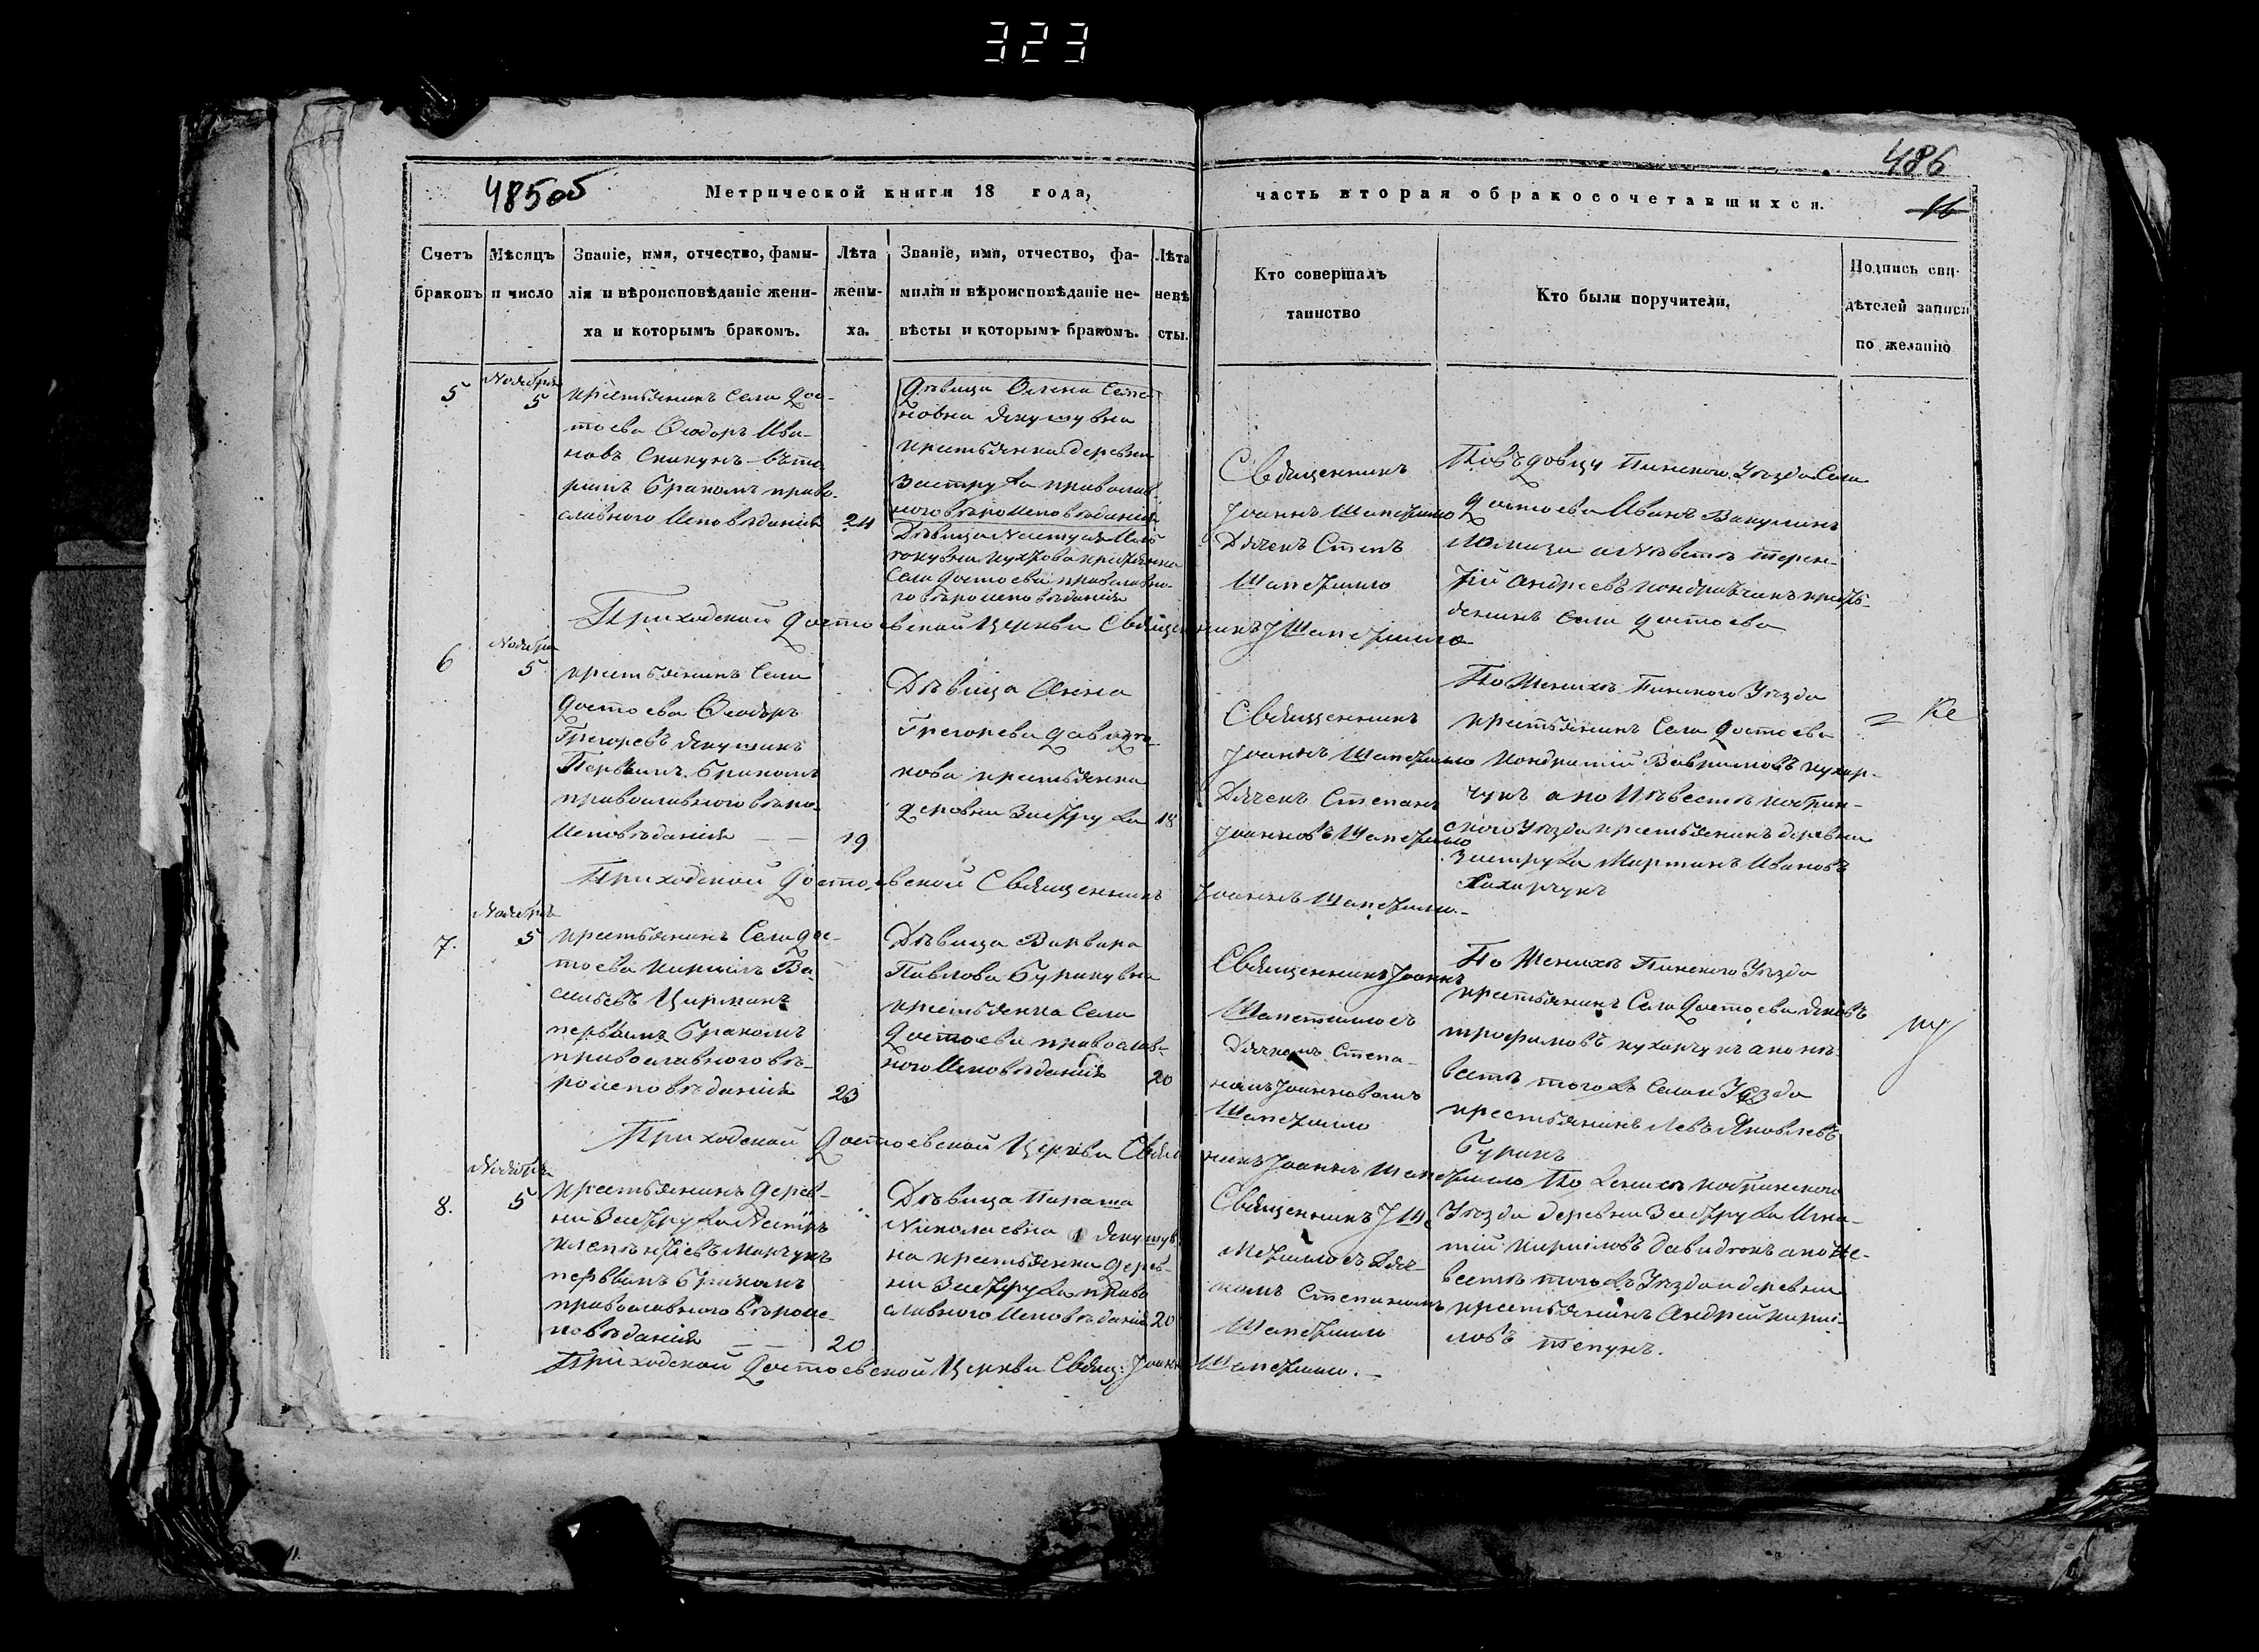 323
485об
Метрической книги 18 года,
часть вторая о бракосочетавшихся.
486
16
Счетъ
браковъ
Мѣсяцъ
и число
Званіе, имя, отчество, фами-
лія и вѣроисповѣданіе жени-
ха и которымъ бракомъ.
Лѣта
жени-
ха.
Званіе, имя, отчество, фа-
милія и вѣроисповѣданіе не-
вѣсты и которымъ бракомъ.
Лѣта
невѣ
сты.
Кто совершалъ
таинство
Кто были поручители.
Подпись сви-
дѣтелей записи
по желанію
5
Ноября
5
крестьянинъ Села Дос-
тоева Ѳеодоръ Ива-
новъ Скакунъ въто
рымъ бракомъ право-
славного Исповѣданія
24
Дѣвица Олена Семе-
новна Якушувна
крестьянка деревни
Застружа православ-
ного вѣроисповѣданія
Дѣвица Настусия
крестьянка
Села Достоева православно-
го вѣроисповѣданія
Священникъ
Іоаннъ Шапетило
Дячекъ Степ
Шапетило
По Вдовцу Пинского Уѣзда Села
Достоева Иванъ
а Невѣстѣ Терен-
тій Андреевъ кресть-
янинъ Села Достоева
Приходской Достоевской Церкви Священникъ І Шапетило
6
Ноября
5
крестьянинъ Села
Достоева Ѳеодоръ
Грегоревъ Якушикъ
Первымъ бракомъ
православного вѣро-
Исповѣданія
19
Дѣвица Анна
Грегорева Давидю-
кова крестьянка
деревни Застружа
18
Священникъ
Іоаннъ Шапетило
Дячекъ Степанъ
Іоанновъ Шапетило
По Женихѣ Пинского Уѣзда
крестьянинъ Села Достоева
Кондратій Кухар-
чукъ а по Невѣстѣ Кобрин-
ского Уѣзда крестьянинъ деревни
Застружа Мартинъ Ивановъ
Приходской Достоевской Священникъ Іоаннъ Шапетило
7.
Ноября
5
крестьянинъ Села Дос-
тоева Кирилъ Ва-
сильевъ Цирманъ
первымъ бракомъ
православного вѣ-
роисповѣданія
23
Дѣвица Варвара
Павлова Бурикувна
крестьянка Села
Достоева православ-
ного Исповѣданія
20
Священникъ Іоаннъ
Шапетило съ
Дячкомъ Степа-
номъ Іоанновомъ
Шапетило
По Женихѣ Пинского Уѣзда
крестьянинъ Села Достоева Яковъ
Трофимовъ Кухарчукъ а по не-
вестѣ того жъ Села и Уѣзда
крестьянинъ Левъ Яковлевъ
Бурикъ
Приходской Достоевской Церкви Священникъ Іоаннъ Шапетило
8.
Ноября
5
крестьянинъ дерев-
ни Застружа Пётръ
Климентіевъ Марчукъ
первымъ бракомъ
православного вѣроис-
повѣданія
20
Дѣвица Параша
Николаевна Якушув-
на крестьянка дерев-
ни Застружа право
славного Исповѣданія
20
Священникъ І Ша
петило съ Дяч-
комъ Степаномъ
Шапетило
По Женихѣ Кобринского
Уѣзда деревни Застружа Игна-
тій Кириловъ Давидюкъ а по Не-
вестѣ того жъ Уѣзда и деревни
крестьянинъ Андрей Кири-
ловъ
Приходской Достоевской Церкви Свящ: Іоаннъ Шапетило.